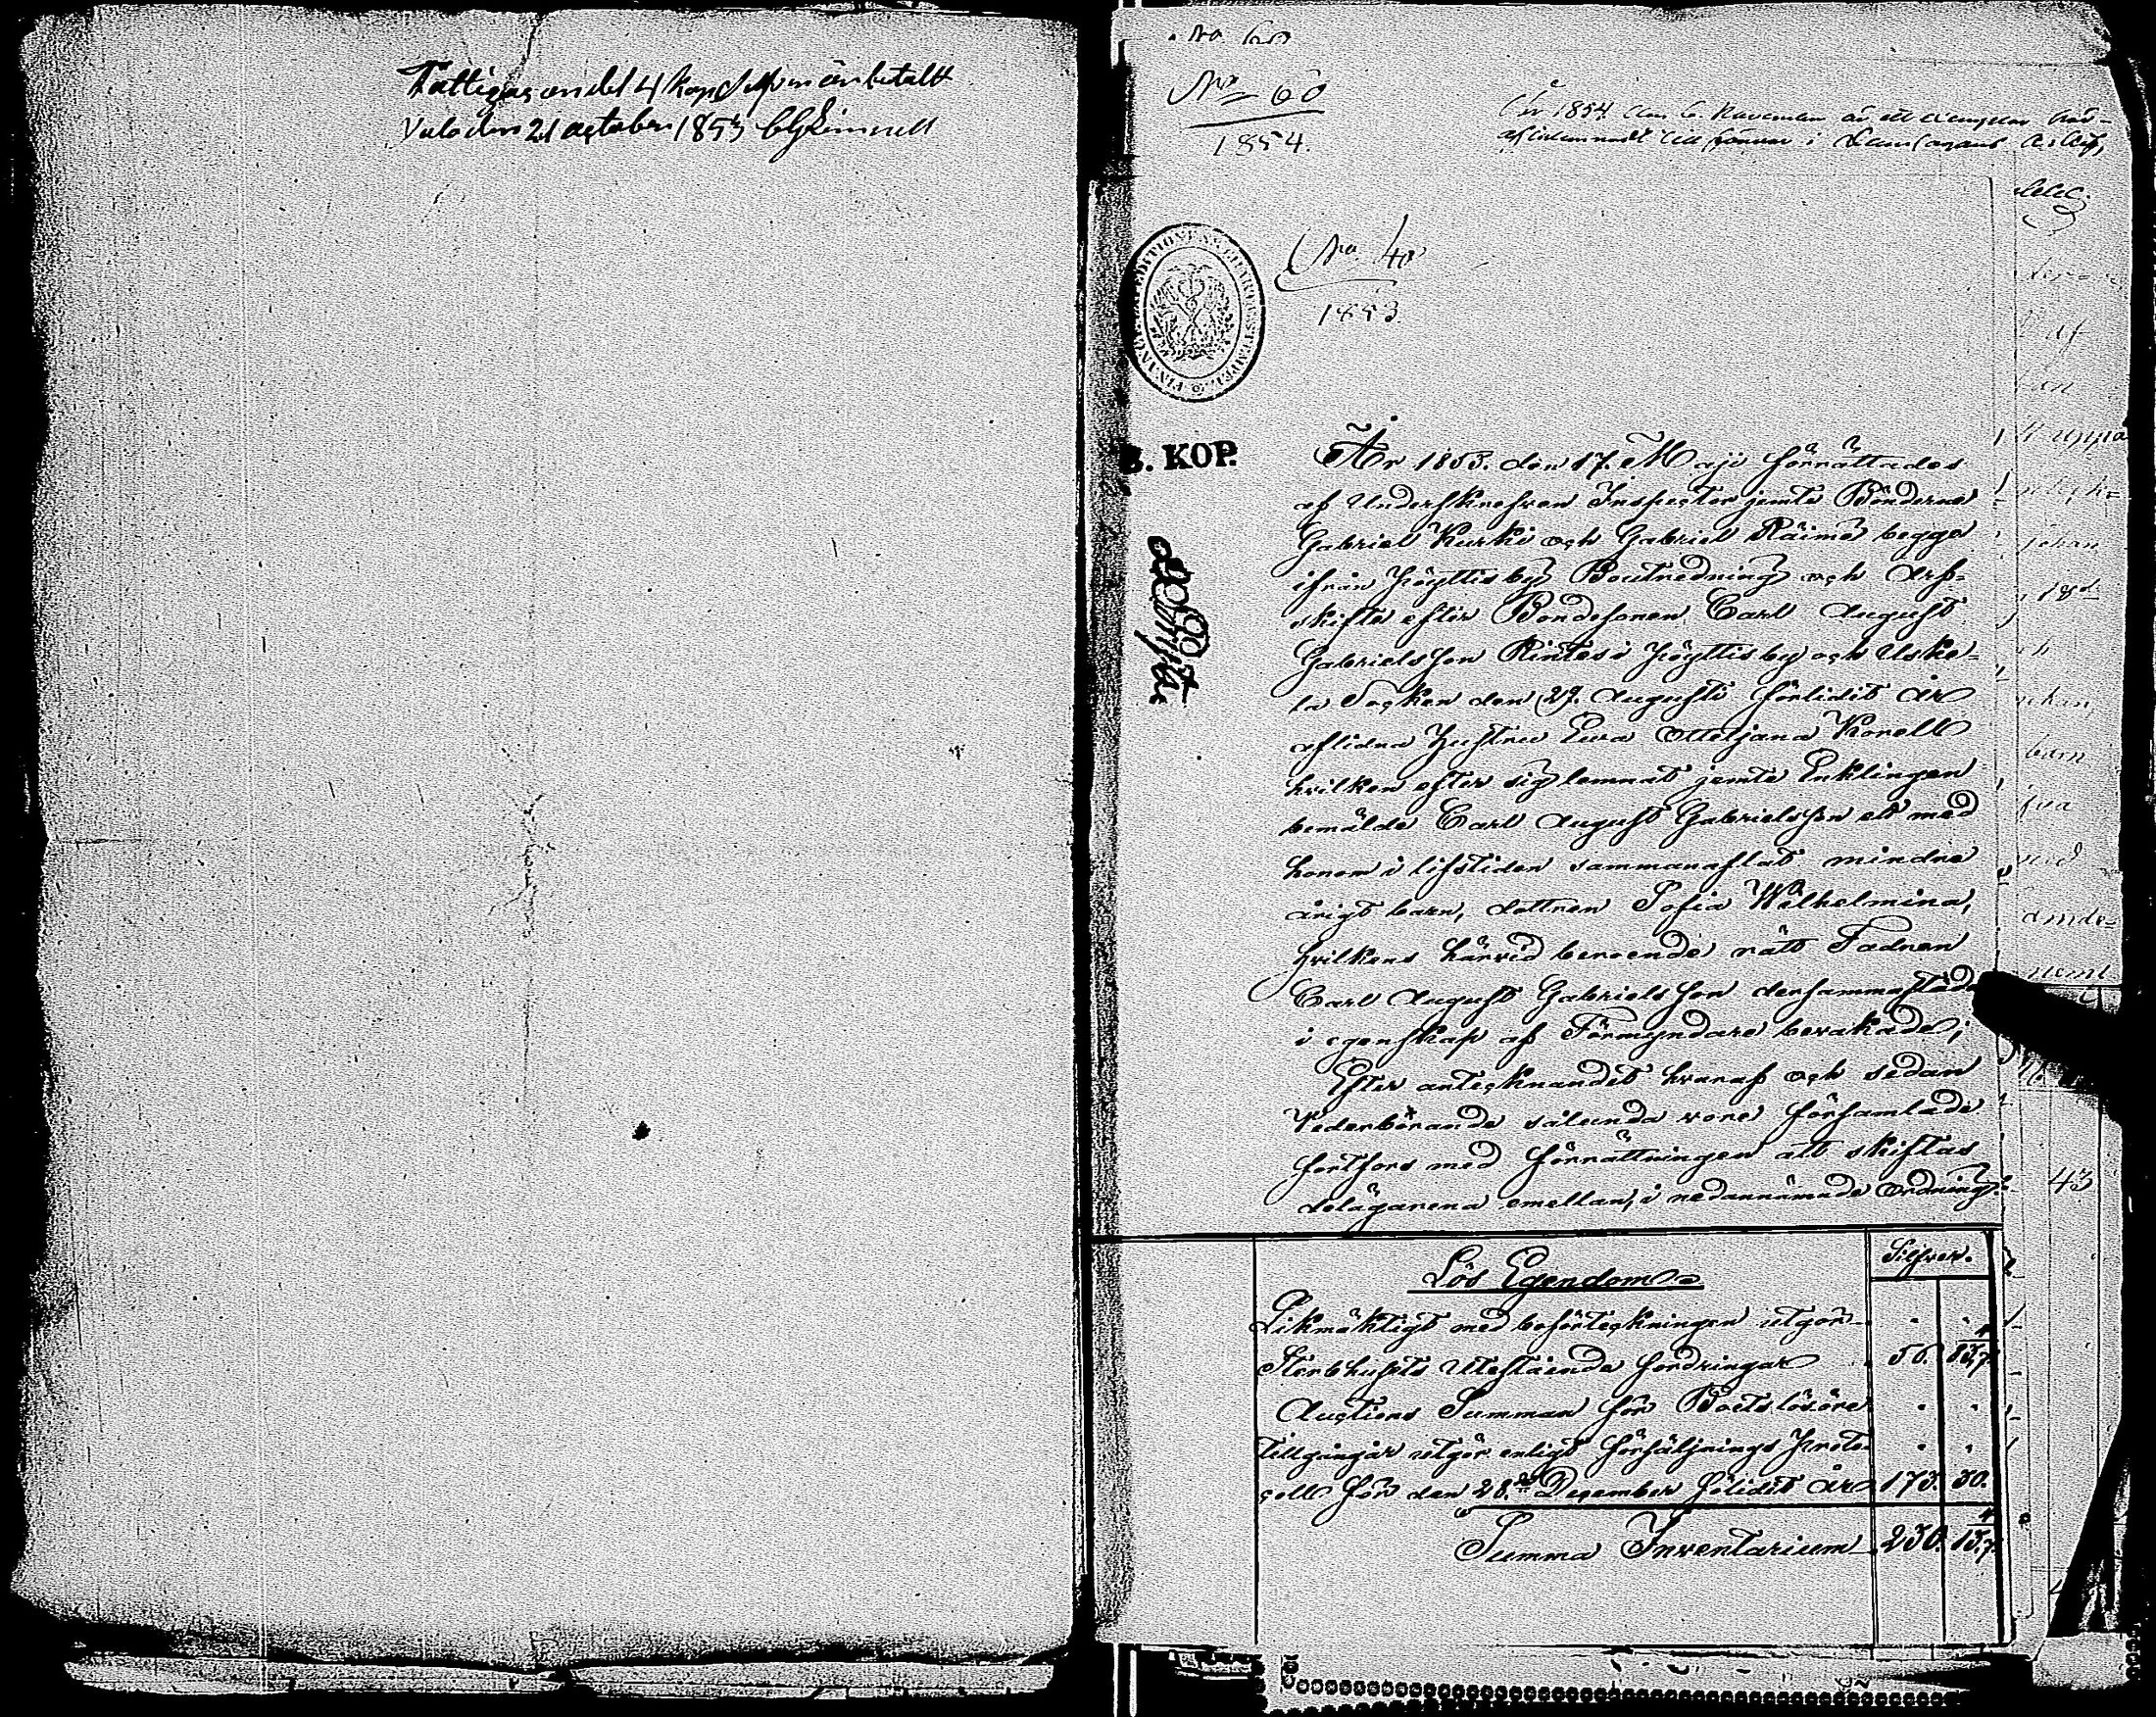 Fattigas andel 4 kop Silfver är betalt
den 21 october 1853
No 60
No 60
1854.
År 1854 den 6. November är ett exemplar
No 40
1853.
KOP.
År 1853. den 17. Maji förrättades
af Underskrefven Inspector jemte Bönderne
Gabriel Kurki och Gabriel Räime begge
ifrån Höyttis by Boutredning och Arf-
skifte efter Bondesonen Carl August
Gabrielsson Rintes i Höyttis by och Uske-
la Socken den 29. Augusti förlidit år
aflidna Hustru Eva Ottoljana Korell
hvilken efter sig lemnat jemte Enklingen
bemälde Carl August Gabrielsson ett med
honom i lifstiden sammanaflat mindre
årigt barn, dottren Sofia Wilhelmina,
hvilkens härvid beroende rätt Fadren
Carl August Gabrielsson dersammastäds
i egenskap af Förmyndare bevakade;
Efter antecknandet hvaraf och sedan
Vederbörande sålunda vore församlade
fortfors med förrättningen att skiftas
delägarena emellan, i nedannämnde ordning:
Lös Egendom
Silfver.
Likmäktigt med beförteckningen utgör
Sterbhusets Utestående fordringar 56. 83 4/7
Auctions Summan för Boets lösöre
tillgångar utgör enligt försäljnings Proto-
coll för den 28.de December förlidit år 173. 30.
Summa Inventarium 230. 13 4/7
43